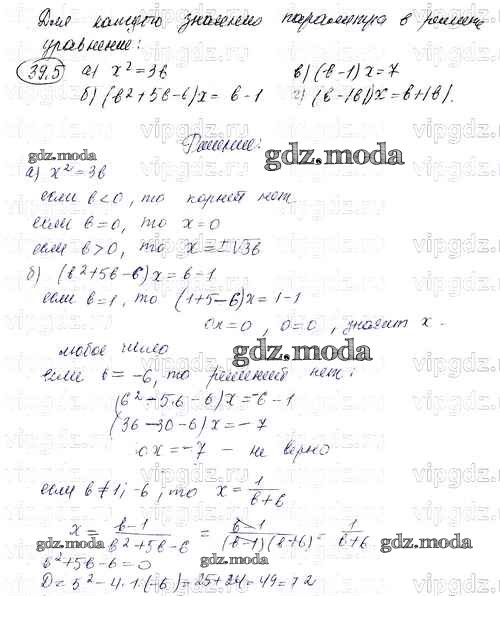 Для каждого значения параметра в решите
уравнение:
39.5 а) x² = 3в   в) (в-1)x = 7
б) (в²+5в-6)x = в-1   г) (в-|в|)x = в+|в|.
Решение:
gdz.moda
а) x² = 3в
если в<0, то корней нет
если в=0, то x=0
если в>0, то x=±√3в
б) (в²+5в-6)x = в-1
если в=1, то (1+5-6)x = 1-1
0x=0, 0=0, значит x -
любое число
gdz.moda
если в= -6, то решений нет:
(6²-5·6-6)x = -6-1
(36-30-6)x = -7
0x = -7 - не верно
если в≠1; -6, то x = 1/(в+6)
x = (в-1)/(в²+5в-6) = (в-1)/((в-1)(в+6)) = 1/(в+6)
gdz.moda gdz.moda gdz.moda
в²+5в-6=0
D = 5²-4·1·(-6) = 25+24=49=7²
vipgdz.ru